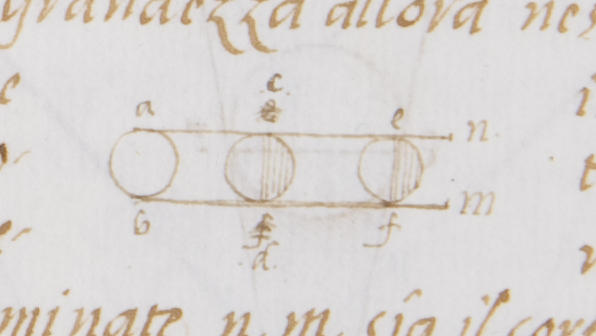 grandezza allora nes
c
a e n
b f m
d
minate n. m. sia il cor